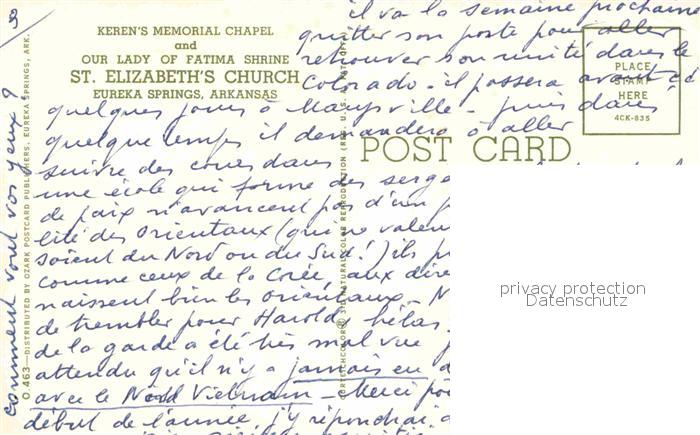 3
KEREN'S MEMORIAL CHAPEL
and
OUR LADY OF FATIMA SHRINE
ST. ELIZABETH'S CHURCH
EUREKA SPRINGS, ARKANSAS
PLACE
STAMP
HERE
4CK-835
POST CARD
il va la semaine prochaine
quitter son poste pour aller
retrouver son unité dans le
Colorado - il passera avant
quelques jours à Maysville - puis dans
quelque temps il demandera à aller
suivre des cours dans
une école qui forme des serge
de paix n'avancent pas d'un
lité des Orientaux (qui ne valen
soient du Nord ou du Sud!) ils
comme ceux de la Corée, aux dire
naissent bien les orientaux - N
de trembler pour Harold hélas.
de la garde a été très mal vue
attendu qu'il n'y a jamais eu
avec le Nord Vietnam - Merci
début de l'année, j'y répondrai
comment vont vos yeux ?
O.463—DISTRIBUTED BY OZARK POSTCARD PUBLISHERS, EUREKA SPRINGS, ARK.
NATURAL COLOR REPRODUCTION (REG. U.S.
privacy protection
Datenschutz